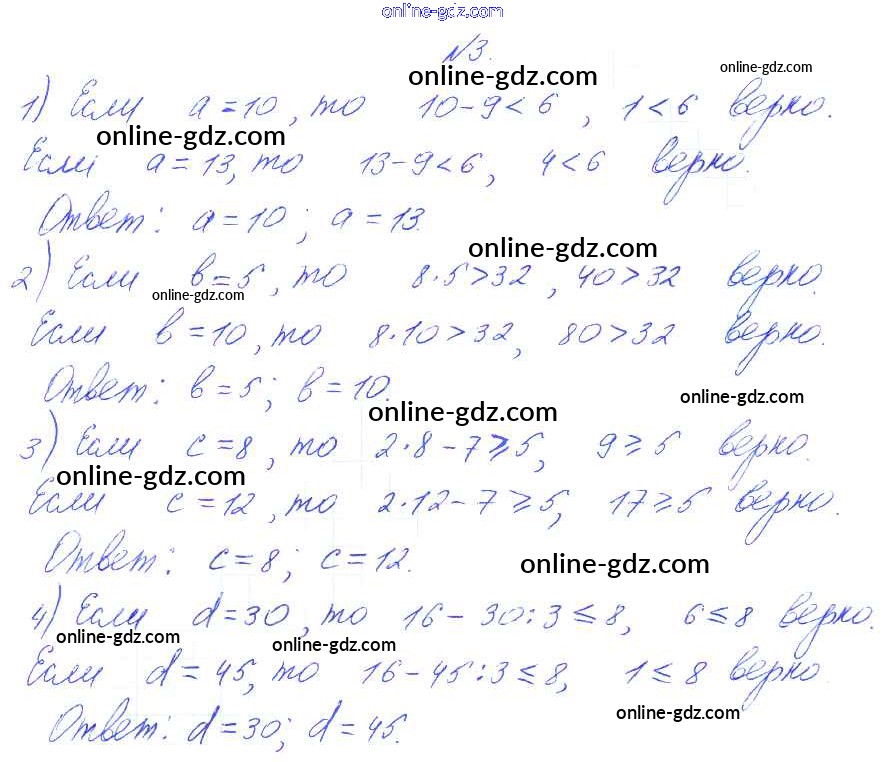 online-gdz.com
№3.
online-gdz.com online-gdz.com
1) Если a=10, то 10-9<6, 1<6 верно.
online-gdz.com
Если a=13, то 13-9<6, 4<6 верно.
Ответ: a=10; a=13.
online-gdz.com
2) Если b=5, то 8·5>32, 40>32 верно.
online-gdz.com
Если b=10, то 8·10>32, 80>32 верно.
Ответ: b=5; b=10.
online-gdz.com
online-gdz.com
3) Если c=8, то 2·8-7⩾5, 9⩾5 верно.
online-gdz.com
Если c=12, то 2·12-7⩾5, 17⩾5 верно.
Ответ: c=8; c=12.
online-gdz.com
4) Если d=30, то 16-30:3⩽8, 6⩽8 верно.
online-gdz.com online-gdz.com
Если d=45, то 16-45:3⩽8, 1⩽8 верно.
Ответ: d=30; d=45.
online-gdz.com